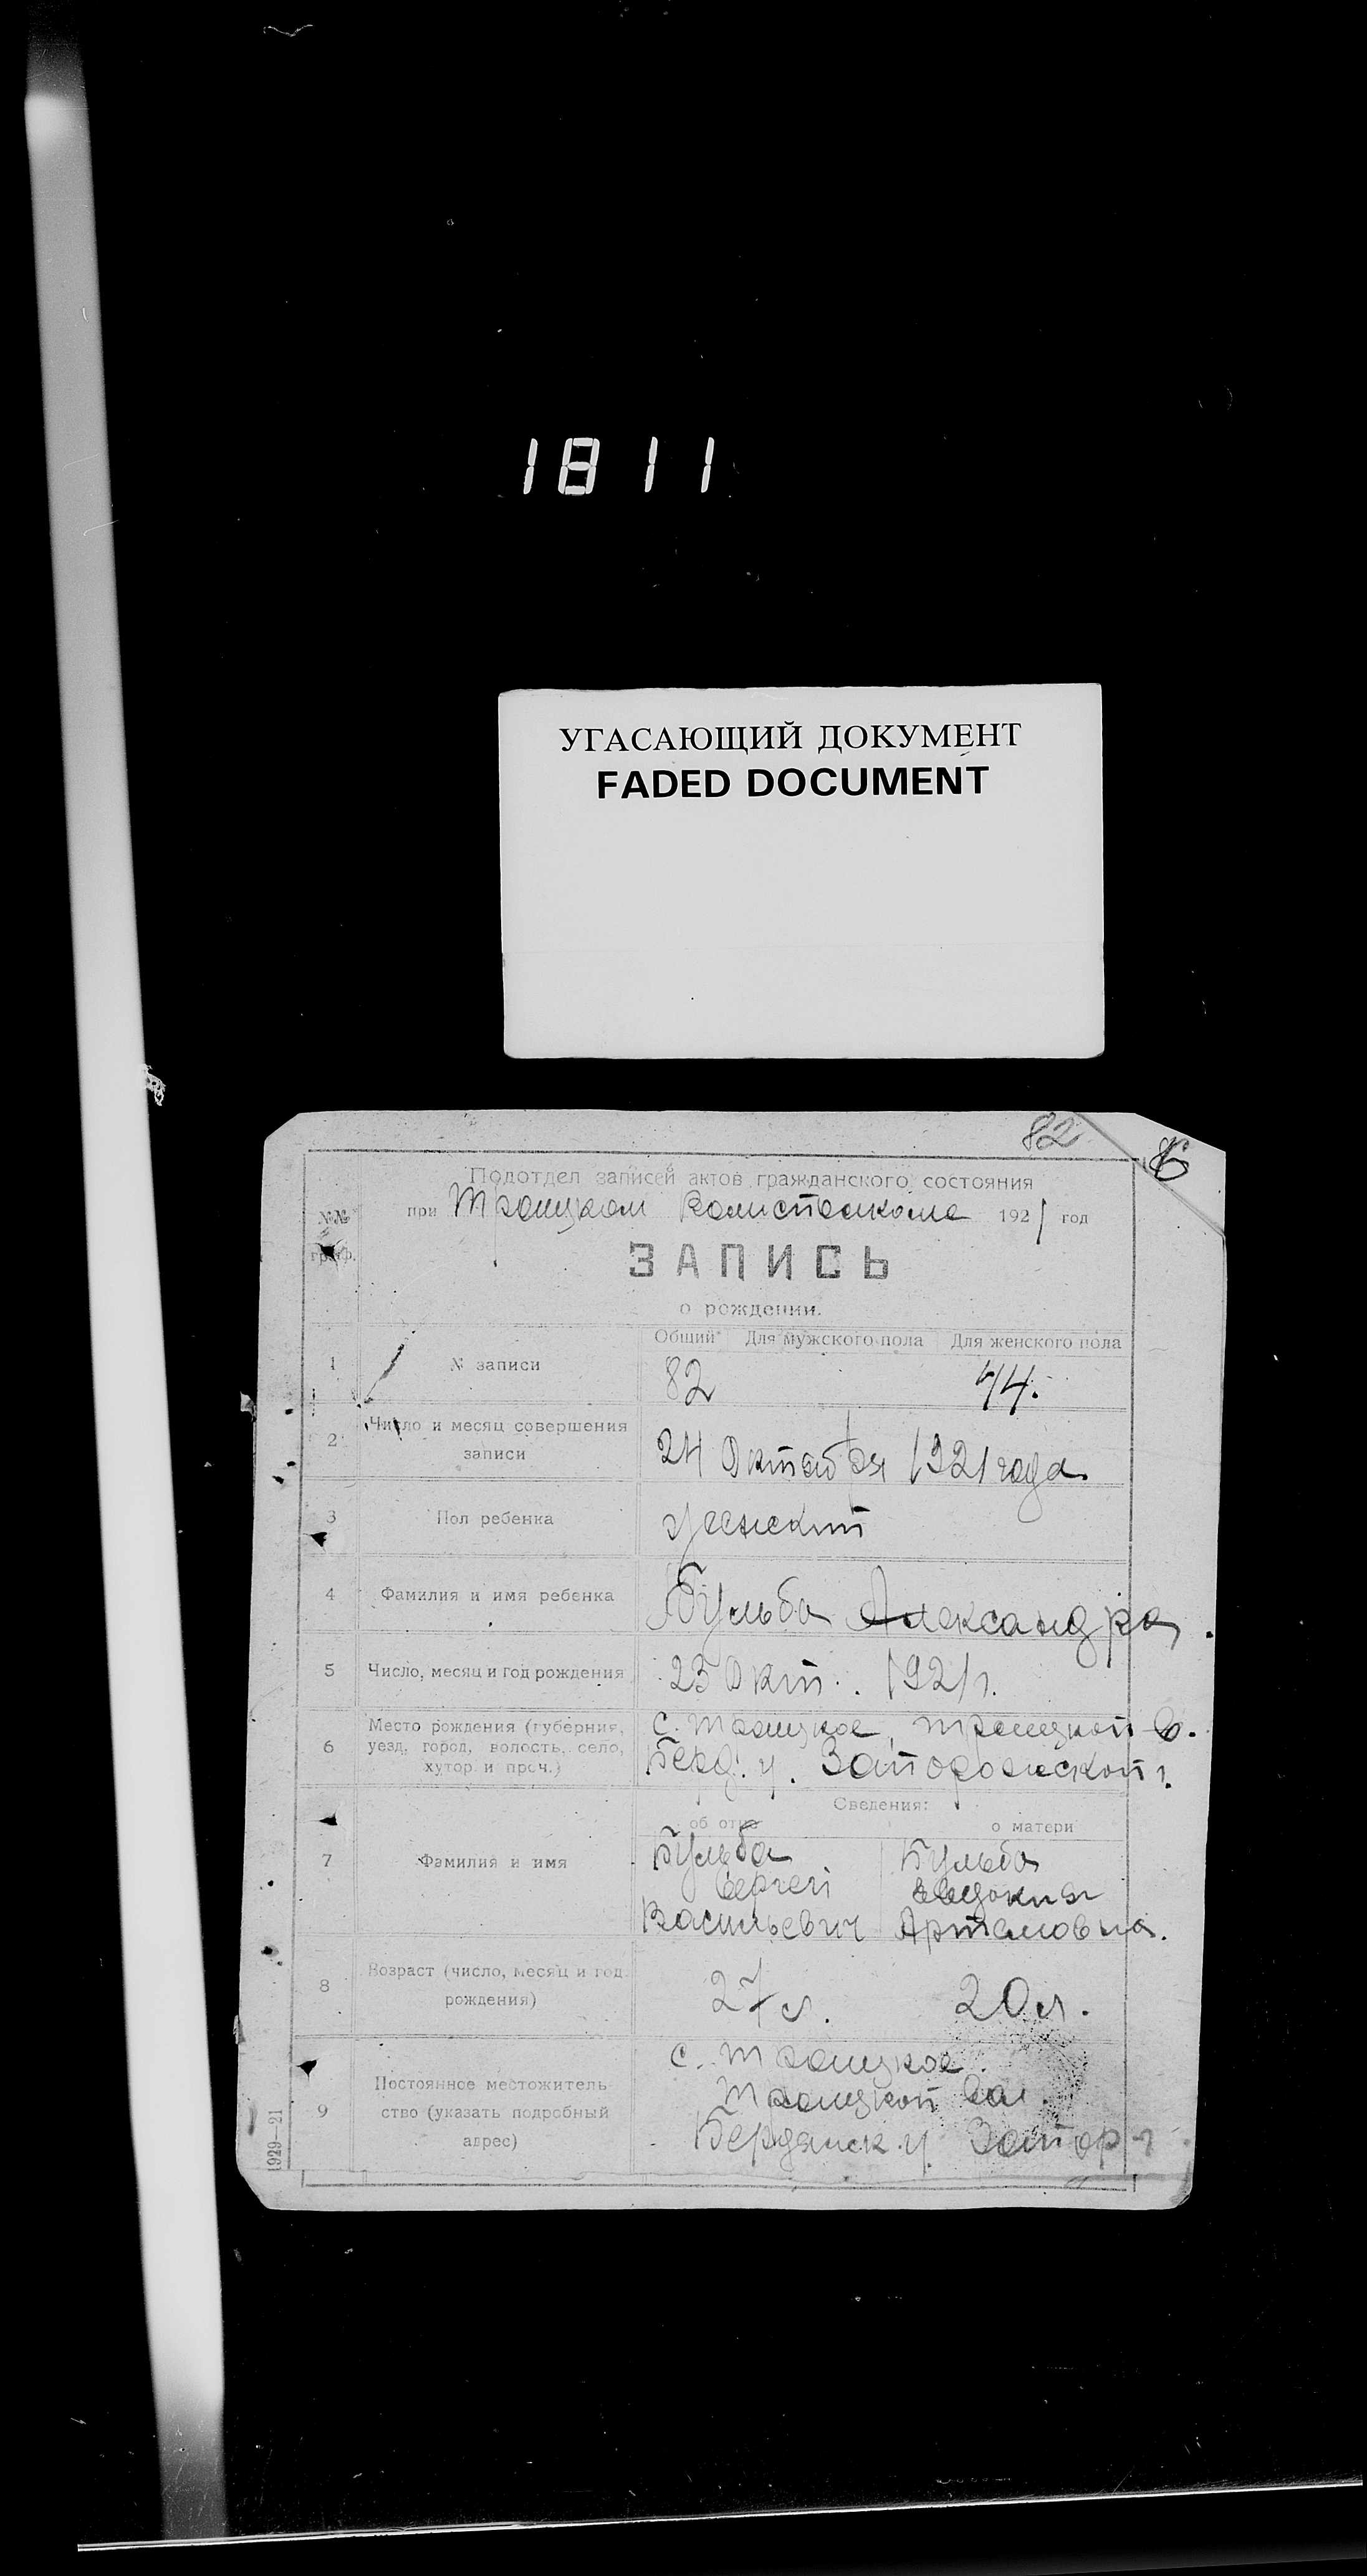 1811
УГАСАЮЩИЙ ДОКУМЕНТ
FADED DOCUMENT
82
Подотдел записей актов гражданского состояния
№№ граф.
при Троицком Волисполкоме 1921 год
ЗАПИСЬ
о рождении.
Общий Для мужского пола Для женского пола
1 № записи 82 44.
2 Число и месяц совершения
записи
24 Октября 1921 года
3 Пол ребенка женский
4 Фамилия и имя ребенка Бульба Александра.
5 Число, месяц и год рождения 23 Окт. 1921 г.
6 Место рождения (губерния,
уезд, город, волость, село,
хутор и проч.)
с. Троицкое, Троицкой в.
Берд. у. Запорожской г.
Сведения:
об отце о матери
7 Фамилия и имя
Бульба Бульба
Сергей Евдокия
Васильевич Артемовна.
8 Возраст (число, месяц и год
рождения)
27 л. 20 л.
9 Постоянное местожитель-
ство (указать подробный
адрес)
с. Троицкое
Троицкой вол.
Бердянск. у. Запор. г.
1929—21